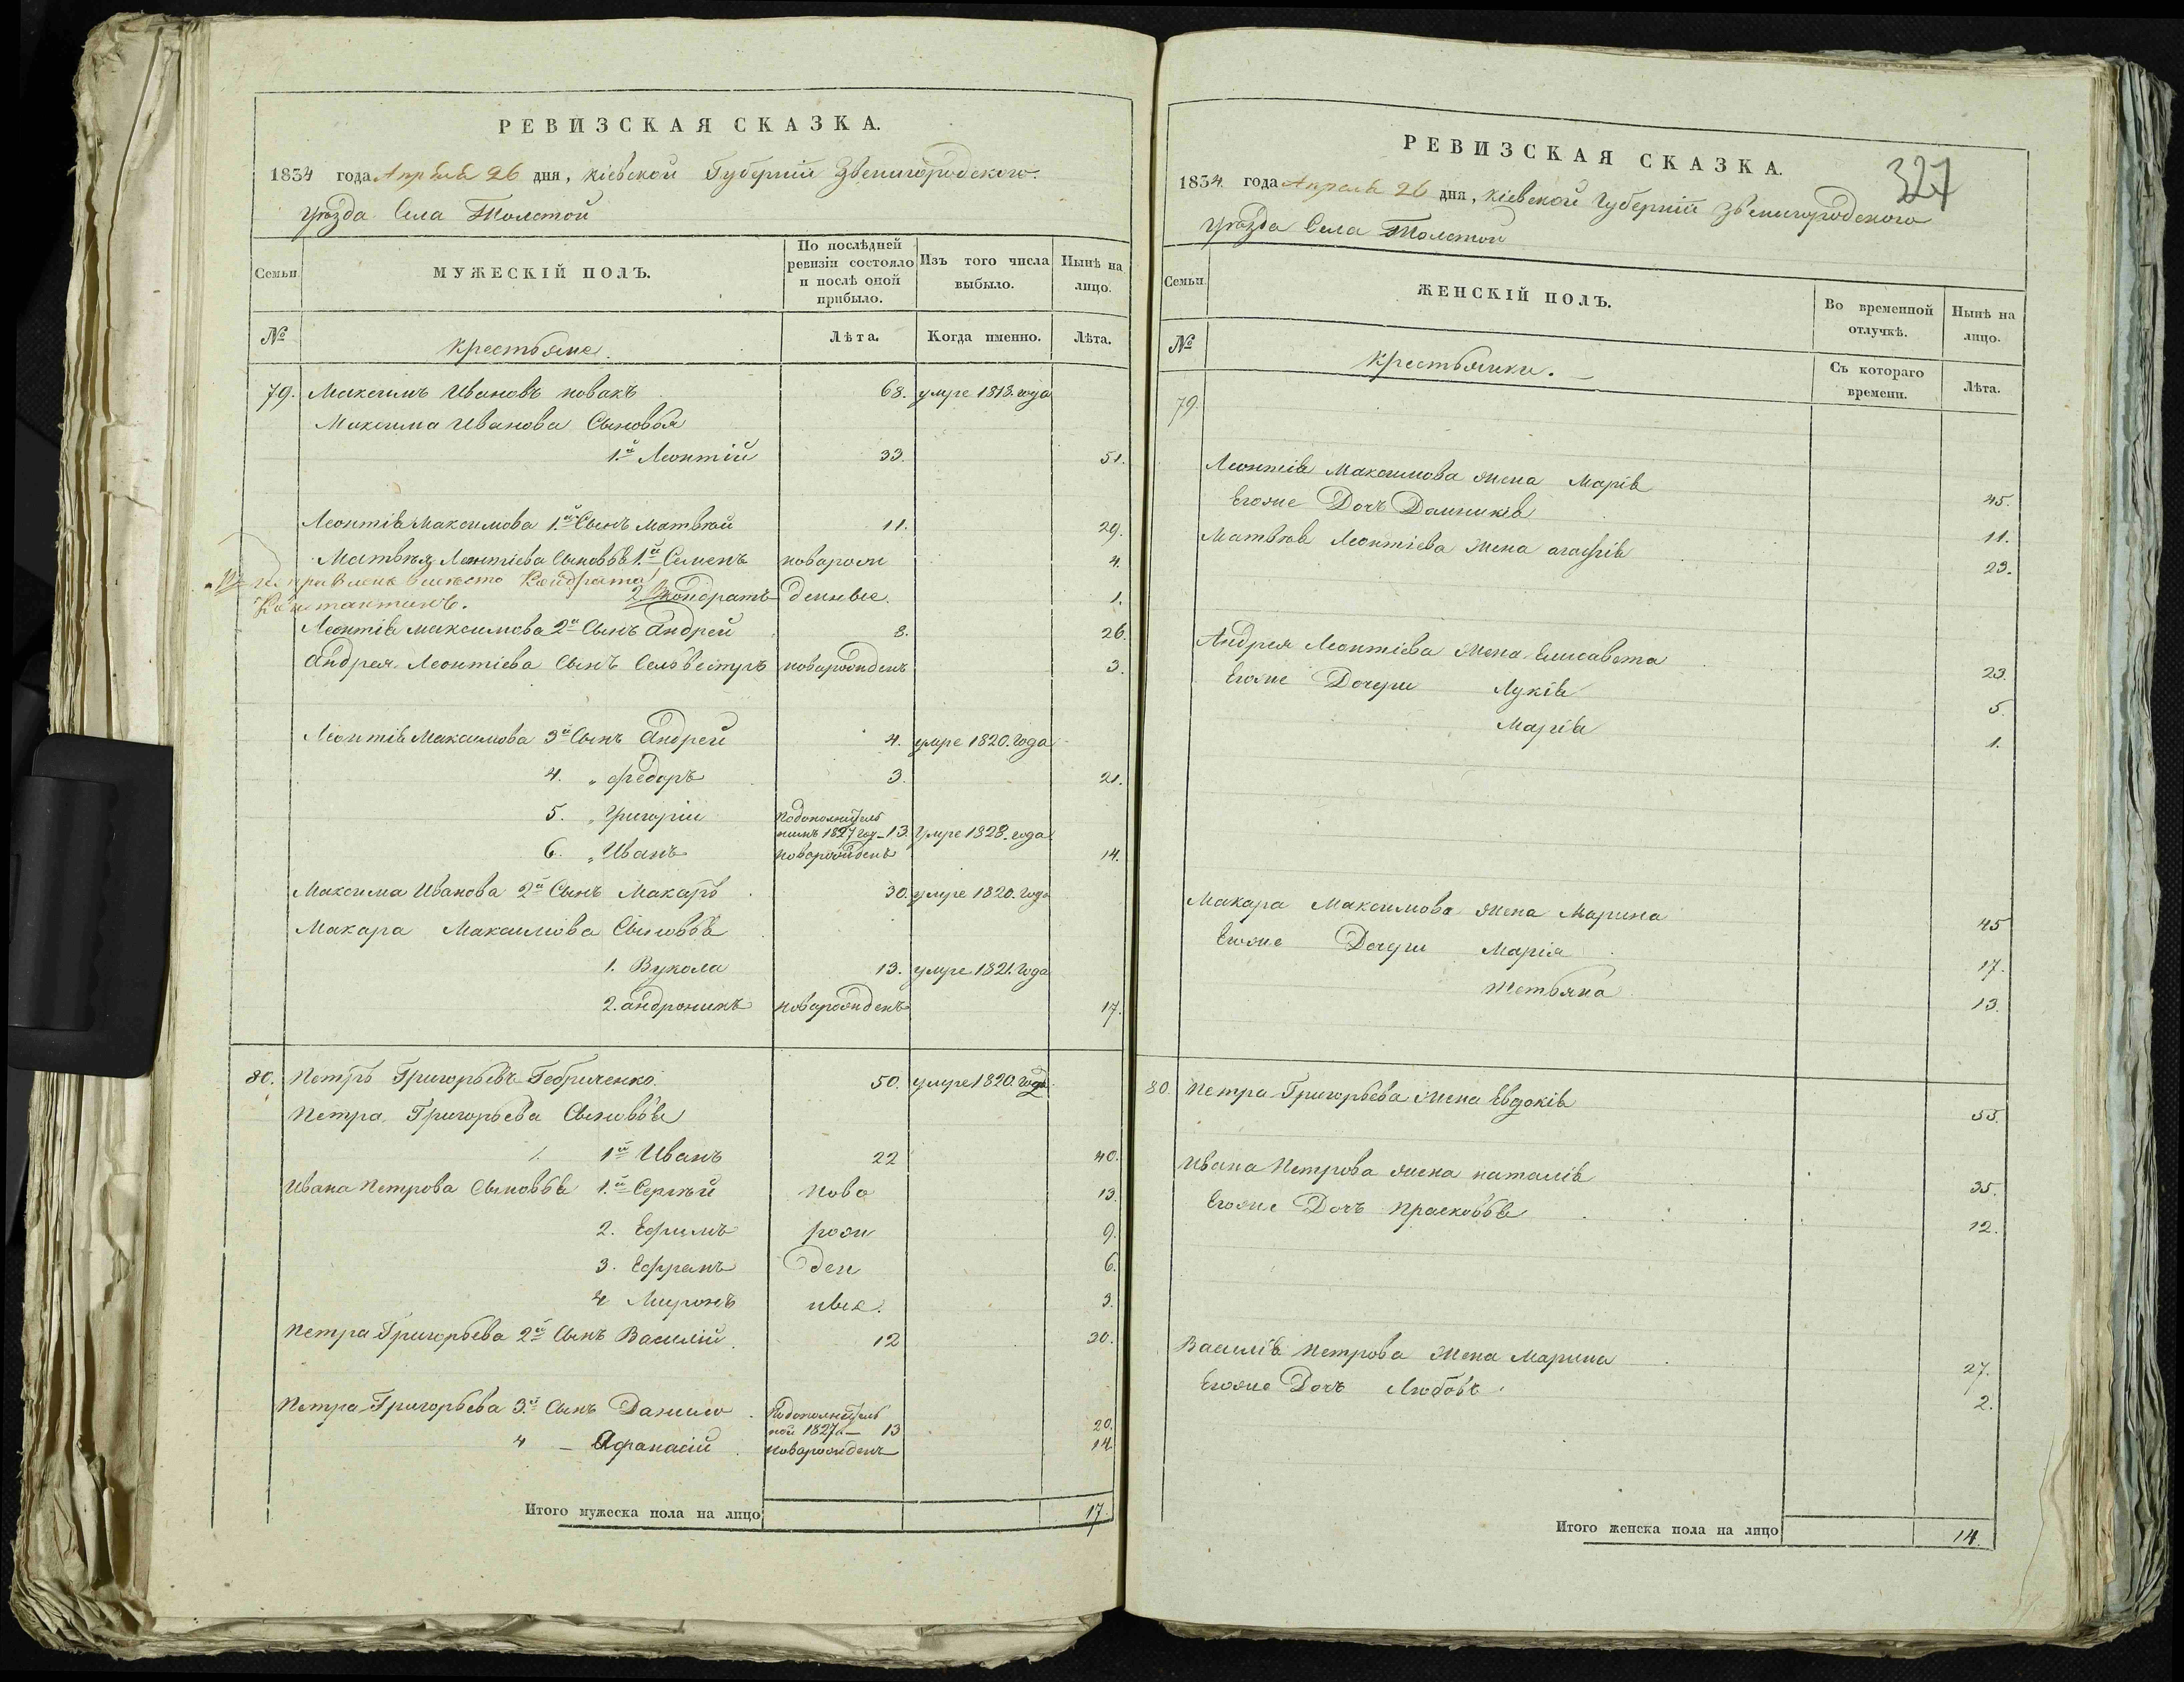 РЕВИЗСКАЯ СКАЗКА.
1834 года Апреля 26 дня, Кіевской Губерніи Звенигородского
уѣзда Села Толстой
Семьи
МУЖЕСКІЙ ПОЛЪ.
По послѣдней ревизіи состояло и послѣ оной прибыло.
Изъ того числа выбыло.
Нынѣ на лицо.
№
Крестьяне.
Лѣта.
Когда именно.
Лѣта.
79. Максимъ Ивановъ новакъ 68. умре 1818. года
Максима Иванова Сыновья
1й Леонтій 33. 51.
Леонтія Максимова 1й Сынъ Матвѣй 11. 29.
Матвѣя Леонтіева Сыновья 1й Семенъ новорож 4.
вмѣсто Кондрата
2. Кондратъ денные. 1.
Леонтія Максимова 2й Сынъ Андрей 8. 26.
Андрея Леонтіева Сынъ Сельвестръ новорожденъ 3.
Леонтія Максимова 3й Сынъ Андрей 4. умре 1820. Года
4. „ Федоръ 3. 21.
5. „ Григорій 1827 год – 13. Умре 1828. года
6. „ Иванъ новорожденъ 14.
Максима Иванова 2й Сынъ Макаръ 30. умре 1820. Года
Макара Максимова Сыновья
1. Вукола 13. умре 1821. Года
2. андроникъ новорожденъ 17.
80. Петръ Григорьевъ 50. умре 1820. Года
Петра Григорьева Сыновья
1й Иванъ 22 40.
Ивана Петрова Сыновья 1й Сергѣй Ново 13.
2. Ефимъ рож 9.
3. Ефремъ ден 6.
4 Миронъ ные. 3.
Петра Григорьева 2й Сынъ Василій 12 30.
Петра Григорьева 3й Сынъ Данило 1827 – 13 20.
4 – Афанасій новорожденъ 14.
Итого мужеска пола на лицо 17.
327
РЕВИЗСКАЯ СКАЗКА.
1834. года Апреля 26 дня, Кіевской Губерніи Звенигородского
уѣзда Села Толстой
Семьи
ЖЕНСКІЙ ПОЛЪ.
Во временной отлучкѣ.
Нынѣ на лицо.
№
Крестьянки.
Съ котораго времени.
Лѣта.
79.
Леонтія Максимова жена Марія 45.
Егоже Дочъ Домникія 11.
Матвѣя Леонтіева жена агафія 23.
Андрея Леонтіева жена Елисавета 23.
Егоже Дочери Лукія 5.
Марія 1.
Макара Максимова жена Марина 45
Егоже Дочери Марія 17.
Тетьяна 13.
80. Петра Григорьева жена Евдокія 55.
Ивана Петрова жена наталія 35.
Егоже Дочъ Прасковья 12.
Василія Петрова жена Марина 27.
Егоже Дочъ Любовь 2.
Итого женска пола на лицо 14.